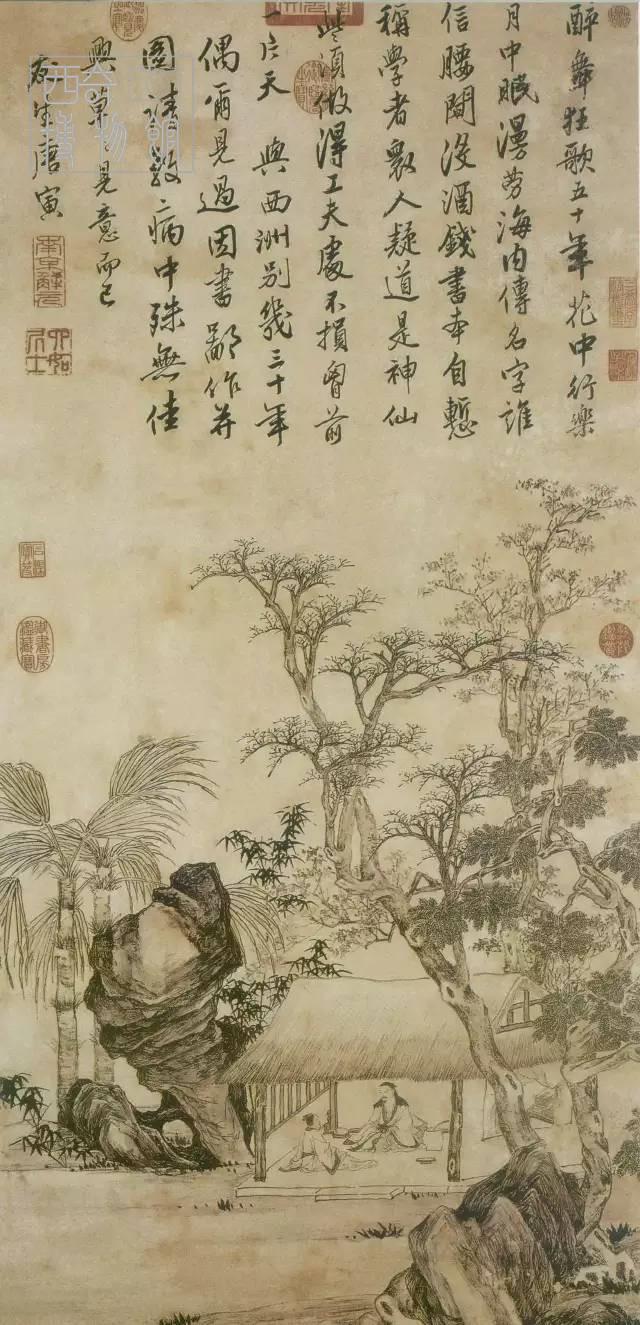 醉舞狂歌五十年花中行樂
月中眠漫勞海內傳名字誰
信腰間沒酒錢書本自慙
稱學者衆人疑道是神仙
些須做得工夫處不損胷前
一片天 與西洲別幾三十年
偶爾見過因書鄙作并
圖請教〻病中殊無佳
興草〻見意而已
友生唐寅
南京解元
六如居士